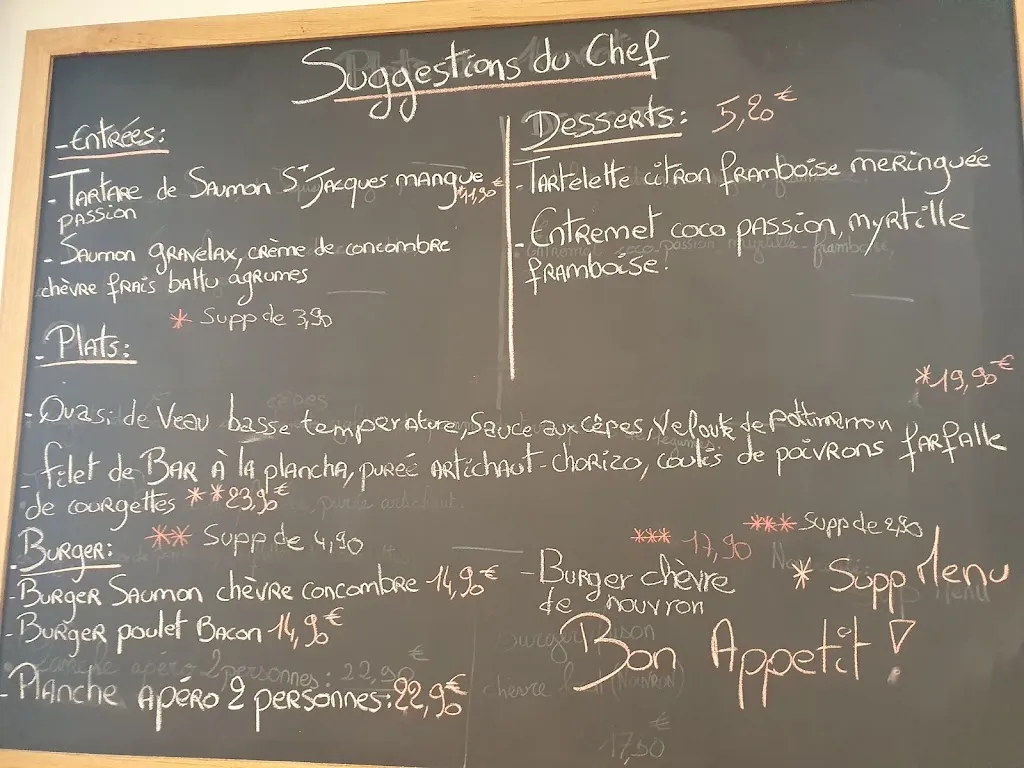 Suggestions du Chef
- Entrées:
- Tartare de Saumon St Jacques mangue *11,90 €
passion
- Saumon gravelax, crème de concombre
chèvre frais battu agrumes
* Supp de 3,90
Desserts: 5,20 €
- Tartelette citron framboise meringuée
- Entremet coco passion, myrtille
framboise.
- Plats:
*19,90 €
- Quasi de Veau basse temperature, Sauce aux cêpes, Velouté de pottimarron
- filet de Bar à la plancha, pureé artichaut-chorizo, coulis de poivrons farfalle
de courgettes **23,90 €
** Supp de 4,90
*** Supp de 2,90
- Burger:
- Burger Saumon chèvre concombre 14,90 €
- Burger poulet Bacon 14,90 €
- Planche apéro 2 personnes: 22,90 €
*** 17,90
- Burger chèvre
de nouvron
* Supp Menu
Bon Appetit !
17,50 €